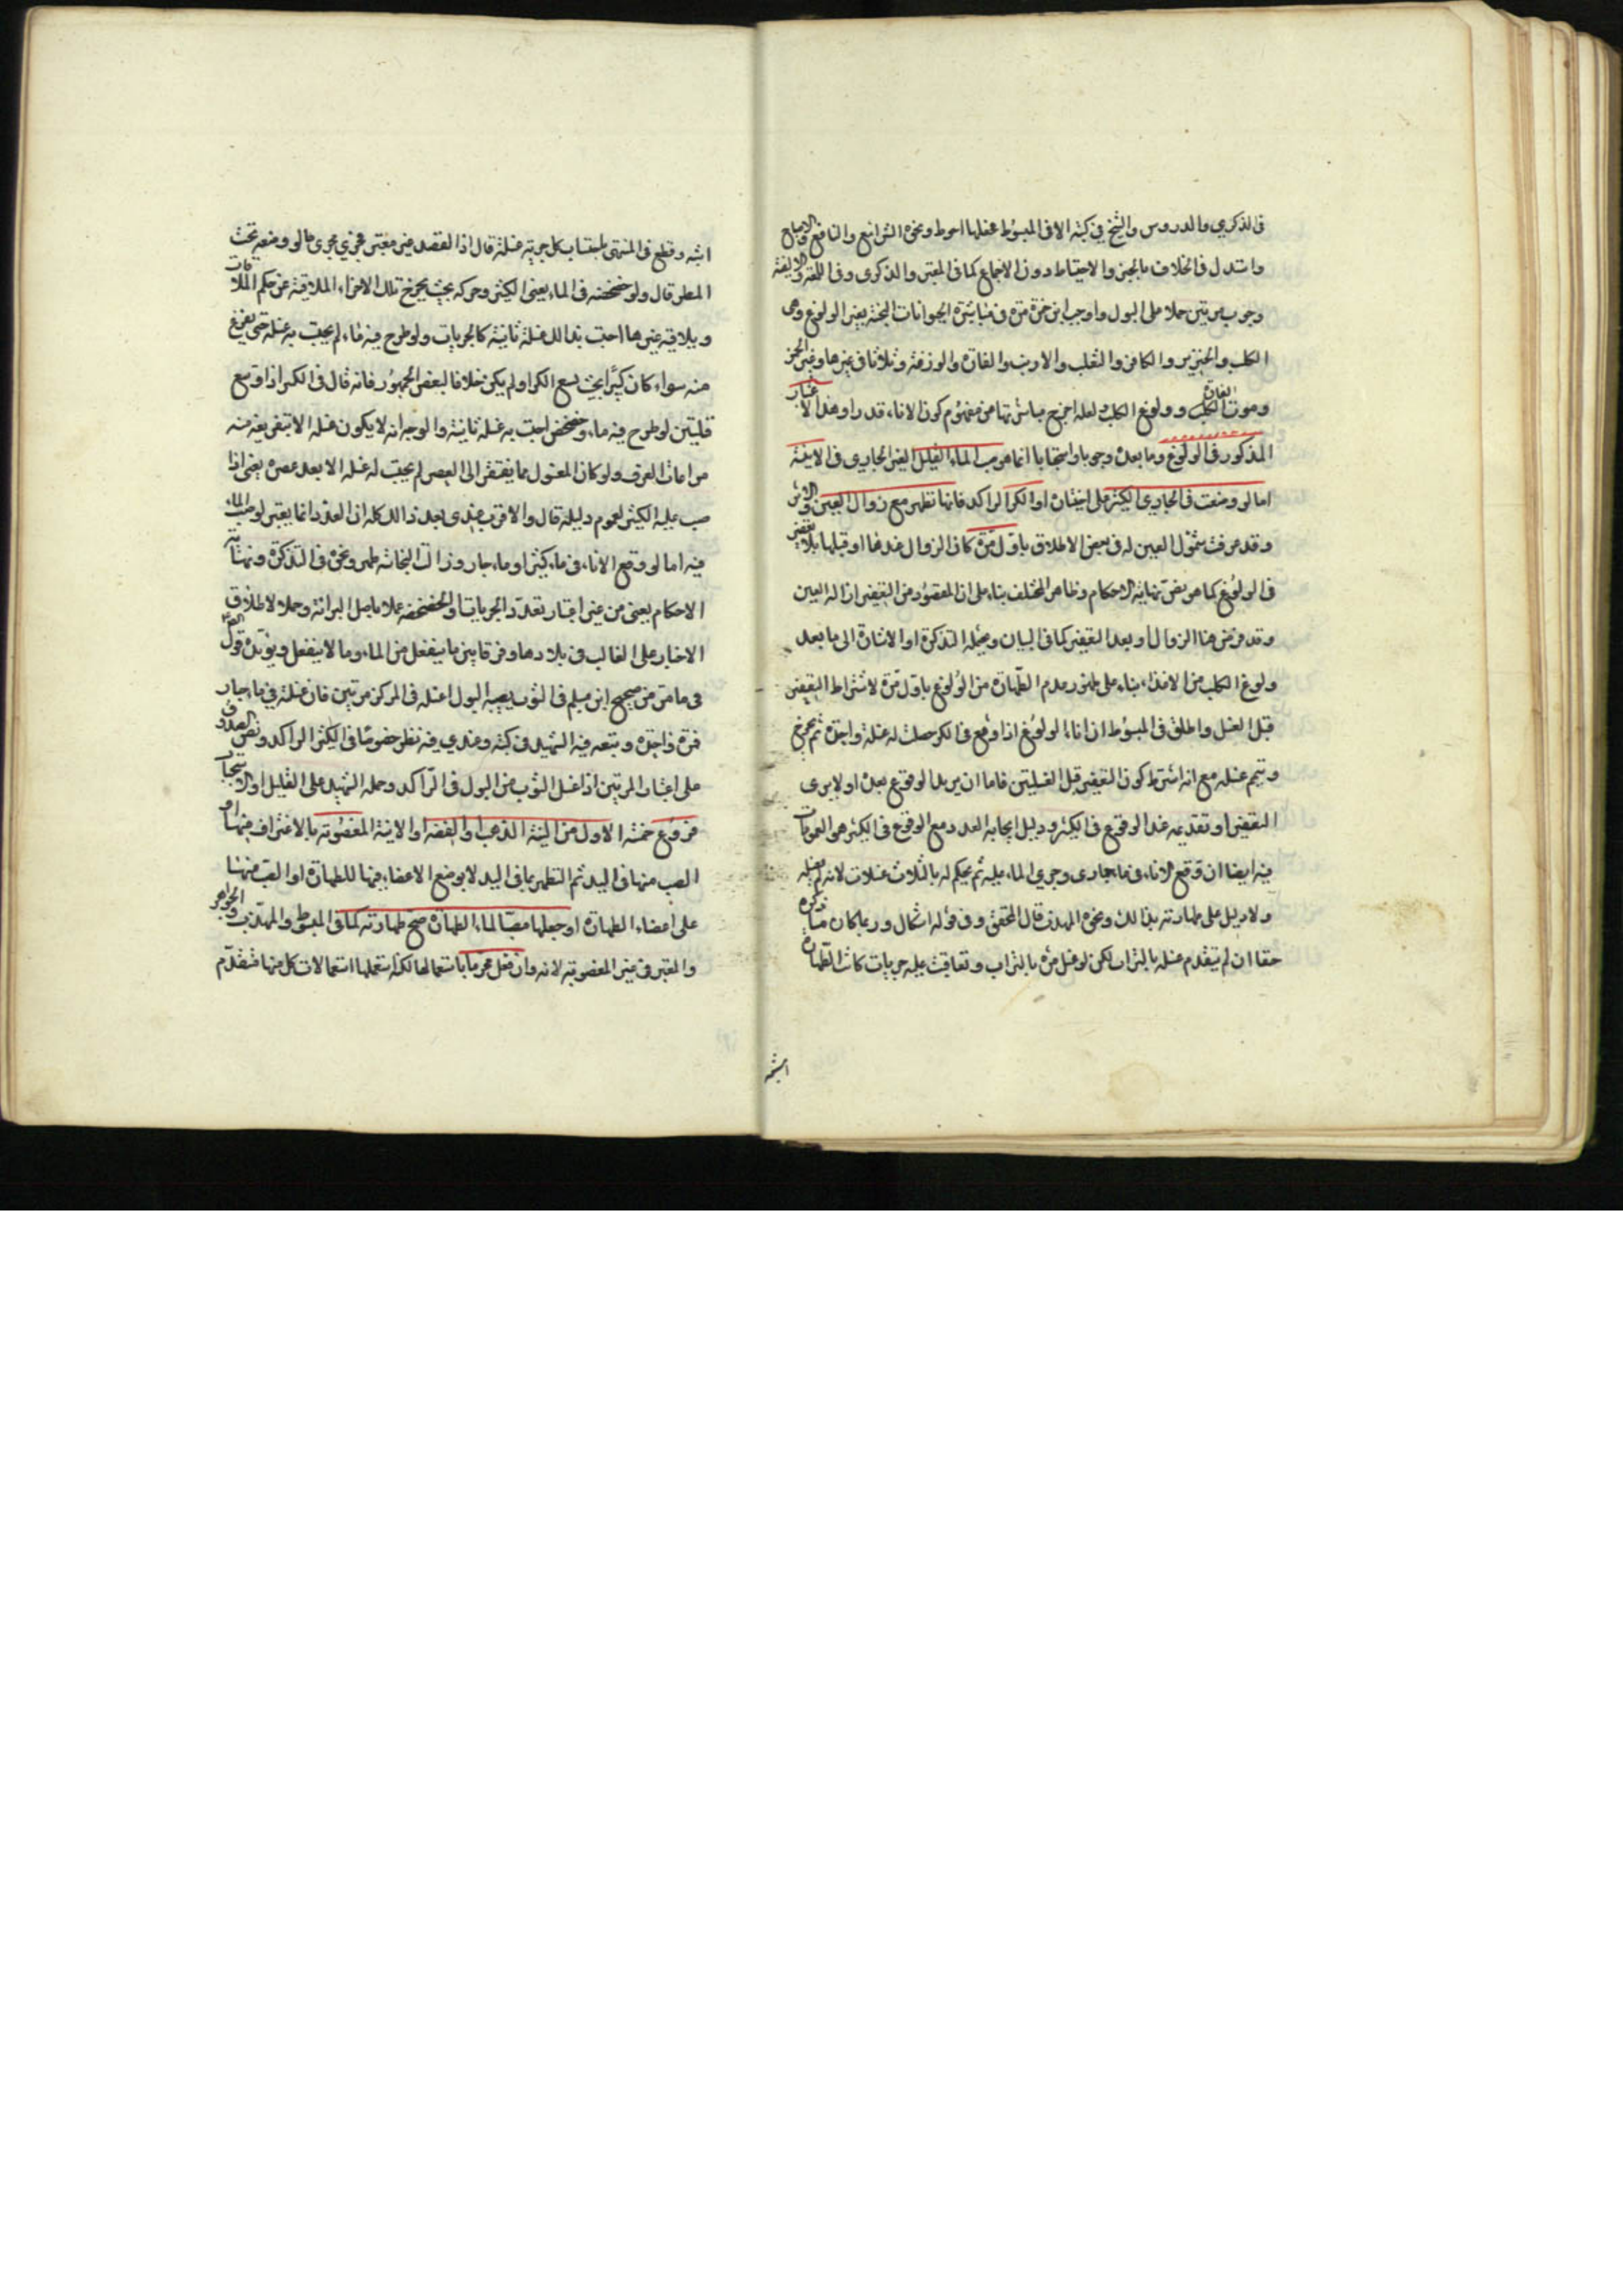 في الذكري والدروس والشيخ في كتبه الا في المبسوط غسلها احوط ونحوه الشرائع والنافع والاجماع
واستدل في الخلاف بالخبر والاحتياط دون الاجماع كما في المعتبر والذكرى وفي اللمعة والالفية
وجوب مرتين حملا على البول واوجب ابن حمزة مرة في مباشرة الحيوانات النجسة بغير الولوغ وهى
الكلب والخنزير والكافر والثعلب والارنب والفارة والوزغة وثلاثا في غيرها وغير الخمر
وموت الفارة وولوغ الكلب لعله اخرج مباشرتها من مفهوم كون الاناء قدرا وهذا الاعتبار
المذكور في الولوغ وما بعده وجوبا واستحبابا انما هو صب الماء القليل الغير الجاري في الانية
اما لو وضعت في الجاري الكثير على اختياره او الكر الراكد فانها تطهر مع زوال العين والاثر
وقد عرفت شمول العين له في بعض الاطلاق باول مرة كان الزوال عندها او قبلها بلا تعفير
في الولوغ كما هو نص نهاية الاحكام وظاهر المختلف بناء على ان المقصود من التعفير ازالة العين
وقد فرض هنا الزوال او بعد التعفير كما في البيان ويحتمله التذكرة او الاشارة الى ما بعد
ولوغ الكلب من الاقذار بناء على ظهور عدم الطهارة من الولوغ باول مرة لاشتراط التعفير
قبل الغسل واطلق في المبسوط ان اناء الولوغ اذا وقع في الكر حصلت له غسلة واحدة ثم يخرج
ويتم غسله مع انه اشترط كون التعفير قبل الغسلتين فاما ان يريد الوقوع بعده او لا يرى
التعفير او تقديمه عند الوقوع في الكثير ودليل ايجابه العدد مع الوقوع في الكثير هو العمومات
فيه ايضا ان وقع الاناء في ماء جاري وجرى الماء عليه لم يحكم له بالثلاث غسلات لانه لم يغسله
ولا دليل على طهارته بذالك ونحوه المهذب قال المحقق وفي قوله اشكال وربما كان ما ذكره
حقا ان لم يتقدم غسله بالتراب لكن لو غسل مرة بالتراب وتعاقبت عليه جريات كانت الطهارة
اشبه
اشبه وقطع في المنتهى باحتساب كل جرية غسلة قال اذا القصد غير معتبر فجري مجرى ما لو وضعه تحت
المطر قال ولو خضخضه في الماء يعني الكثير وحركه بحيث يخرج تلك الاجزاء الملاقية عن حكم الملاقات
ويلاقيه غيرها احتسب بذالك غسلة ثانية كالجريات ولو طرح فيه ماء لم يحتسب به غسلة حتى يفرغ
منه سواء كان كبيرا بحيث يسع الكر او لم يكن خلافا لبعض الجمهور فانه قال في الكبير اذا وسع
قلتين لو طرح فيه ماء وخضخض احتسب به غسلة ثانية والوجه انه لا يكون غسلة الا بتفريغه منه
مراعاة للعرف ولو كان المغسول مما يفتقر الى العصر لم يحتسب له غسلة الا بعد عصره يعني اذا
صب عليه الكثير لعموم دليله قال والاقرب عندي بعد ذالك كله ان العدد انما يعتبر لو صب الماء
فيه اما لو وقع الاناء في ماء كثير او ماء جار وزالت النجاسة طهر ونحوه في التذكرة ونهاية
الاحكام يعني من غير اعتبار تعدد الجريات او الخضخضة عملا باصل البرائة وحملا لاطلاق
الاخبار على الغالب في بلادها وفرقا بين ما ينفعل من الماء وما لا ينفعل ويؤيده قول الصادق
في ما مر من صحيح ابن مسلم في الثوب يصيبه البول اغسله في المركن مرتين فان غسلته في ماء جار
فمرة واحدة وتبعه فيه الشهيد في كتبه وعندي فيه نظر خصوصا في الكثير الراكد ونص الصدوق
على اعتبار المرتين اذا غسل الثوب من البول في الراكد وحمله الشهيد على القليل او الاستحباب
فروع خمسة الاول من انية الذهب او الفضة او الانية المغصوبة بالاغتراف منها او
الصب منها في اليد ثم التطهر بما في اليد لا بوضع الاعضاء فيها للطهارة او الصب منها
على اعضاء الطهارة او جعلها مصبا لماء الطهارة صح طهارته كما في المبسوط والمهذب والجواهر
والمعتبر في غير المغصوبة لانه وان فعل محرما باستعمالها لكنه استعملها استعمالات كل منها متقدم